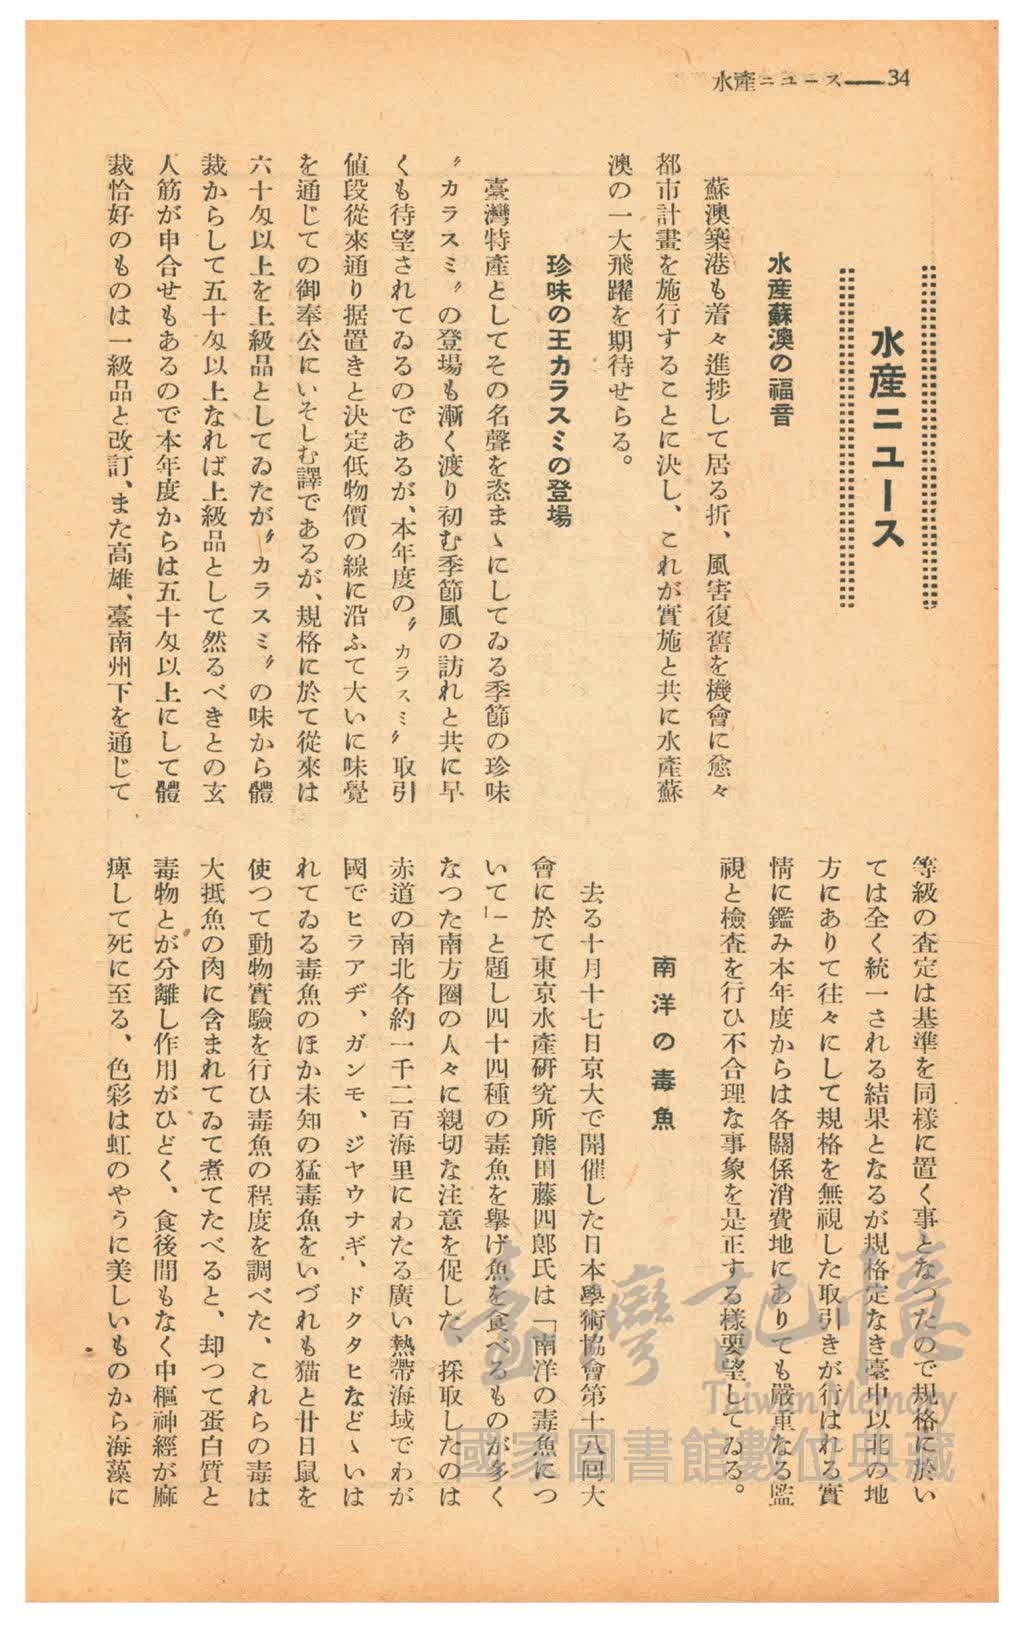 水產ニュース――34
水産ニュース
水産蘇澳の福音
蘇澳築港も着々進捗して居る折、風害復舊を機會に愈々
都市計畫を施行することに決し、これが實施と共に水產蘇
澳の一大飛躍を期待せらる。
珍味の王カラスミの登場
臺灣特產としてその名聲を恣まゝにしてゐる季節の珍味
〃カラスミ〃の登場も漸く渡り初む季節風の訪れと共に早
くも待望されてゐるのであるが、本年度の〃カラスミ〃取引
値段從來通り据置きと決定低物價の線に沿ふて大いに味覺
を通じての御奉公にいそしむ譯であるが、規格に於て從來は
六十匁以上を上級品としてゐたが〃カラスミ〃の味から體
裁からして五十匁以上なれば上級品として然るべきとの玄
人筋が申合せもあるので本年度からは五十匁以上にして體
裁恰好のものは一級品と改訂、また高雄、臺南州下を通じて
等級の査定は基準を同樣に置く事となつたので規格に於い
ては全く統一される結果となるが規格定なき臺中以北の地
方にありて往々にして規格を無視した取引きが行はれる實
情に鑑み本年度からは各關係消費地にありても嚴重なる監
視と檢査を行ひ不合理な事象を是正する樣要望してゐる。
南洋の毒魚
去る十月十七日京大で開催した日本學術協會第十八回大
會に於て東京水產硏究所熊田藤四郞氏は「南洋の毒魚につ
いて」と題し四十四種の毒魚を擧げ魚を食べるものが多く
なつた南方圈の人々に親切な注意を促した、採取したのは
赤道の南北各約一千二百海里にわたる廣い熱帶海域でわが
國でヒラアヂ、ガンモ、ジヤウナギ、ドクタヒなどゝいは
れてゐる毒魚のほか未知の猛毒魚をいづれも猫と廿日鼠を
使つて動物實驗を行ひ毒魚の程度を調べた、これらの毒は
大抵魚の肉に含まれてゐて煮てたべると、却つて蛋白質と
毒物とが分離し作用がひどく、食後間もなく中樞神經が麻
痺して死に至る、色彩は虹のやうに美しいものから海藻に
臺灣記憶
Taiwan Memory
國家圖書館數位典藏